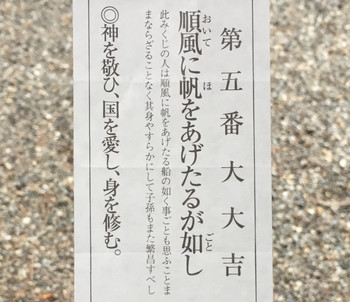 第五番大大吉
順風に帆をあげたるが如し
おいて ほ ごと
此みくじの人は順風に帆をあげたる船の如く事ごとも思ふことま
まならざることなく其身やすらかにして子孫もまた繁昌すべし
◎神を敬ひ、国を愛し、身を修む。